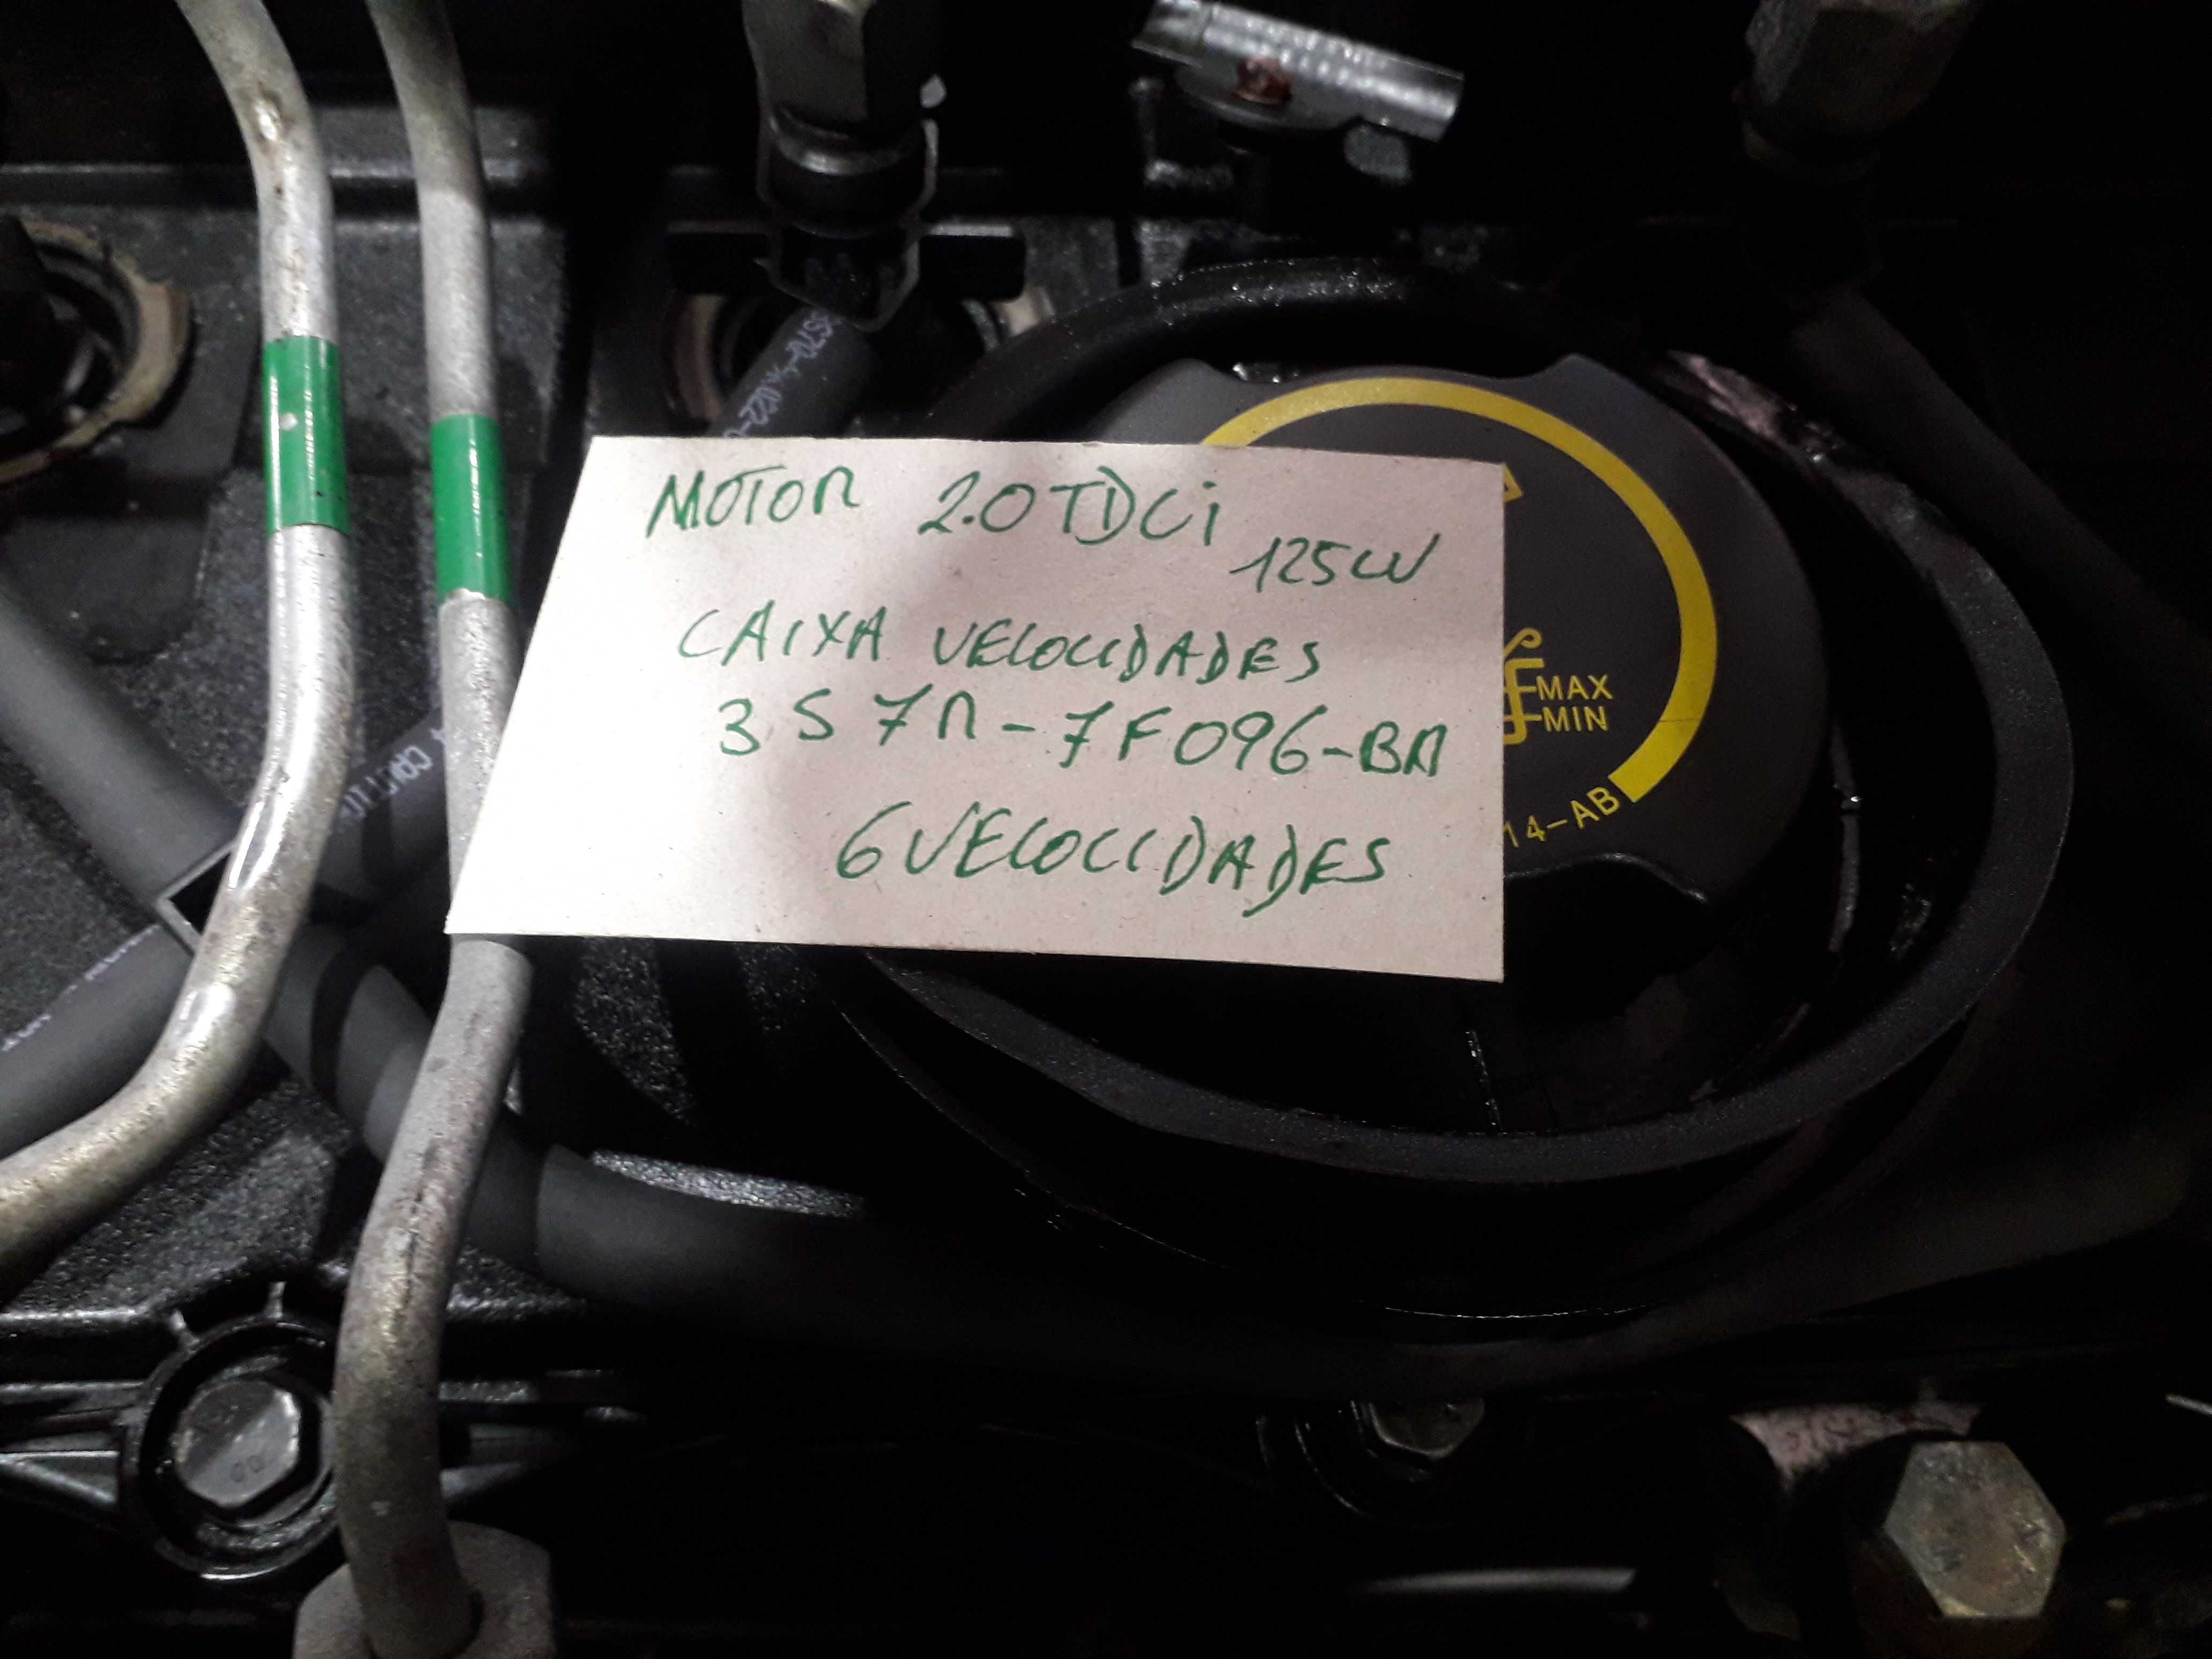 MOTOR 2.0TDCi
125CV
CAIXA VELOCIDADES
3S7R-7F096-BA
6 VELOCIDADES
MAX
MIN
14-AB